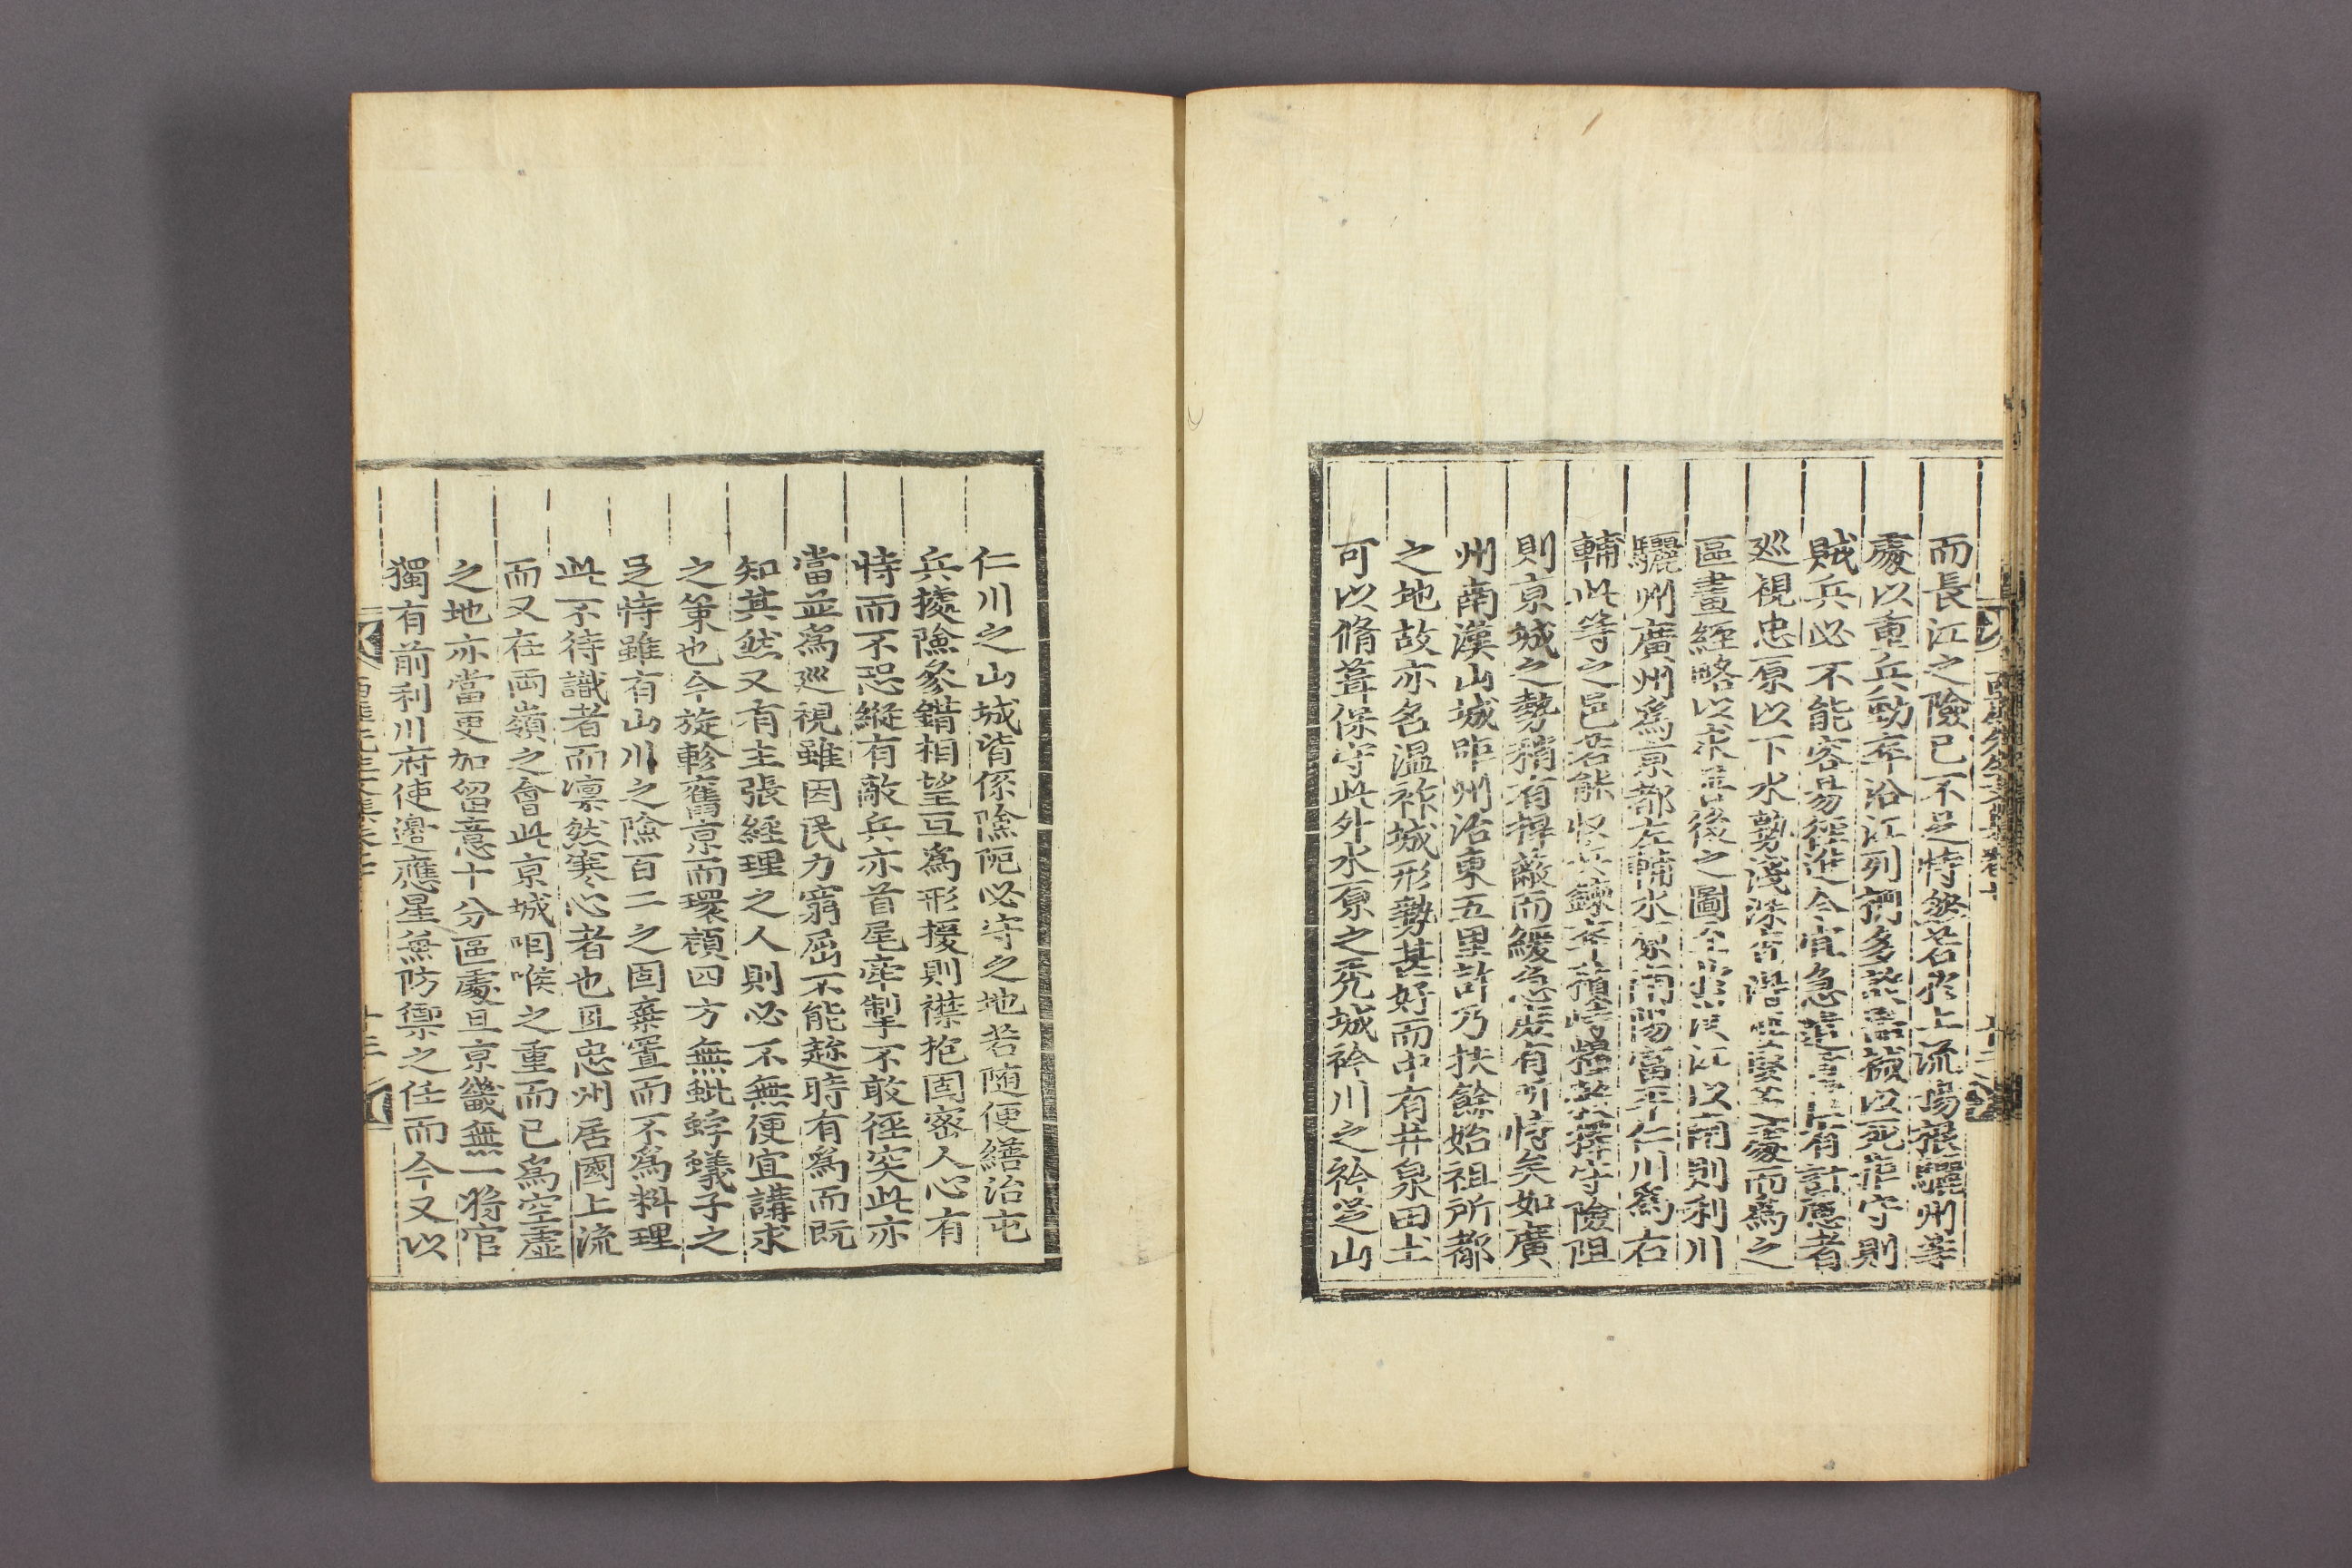 而長江之險已不足恃然若於上流楊根驪州等
處以重兵勁卒沿江列柵多設器械以死靠守則
賊兵必不能容易徑進今宜急遣重臣有計慮者
巡視忠原以下水勢淺深宜設堡寨之處而爲之
區畫經略以求善後之圖至漢江以南則利川
驪州廣州爲京都左輔水原南陽富平仁川爲右
輔此等之邑若能堅兵鍊卒積峙糧草擇守險阻
則京城之勢稍有捍蔽而緩急庶有所恃矣如廣
州南漢山城距州治東五里許乃扶餘始祖所都
之地故亦名温祚城形勢甚好而中有井泉田土
可以脩葺保守此外水原之禿城衿川之衿芝山
仁川之山城皆係險阨必守之地若随便繕治屯
兵據險參錯相望互爲形援則襟抱固密人心有
恃而不恐縱有敵兵亦首尾牽掣不敢徑突此亦
當並爲巡視雖因民力窮屈不能趂時有爲而既
知其然又有主張經理之人則必不無便宜講求
之策也今旋軫舊京而環顧四方無蚍蜉蟻子之
足恃雖有山川之險百二之固棄置而不爲料理
此不待識者而凛然寒心者也且忠州居國上流
而又在両嶺之會此京城咽喉之重而已爲空虚
之地亦當更加留意十分區處且京畿無一將官
獨有前利川府使邊應星無防禦之任而今又以